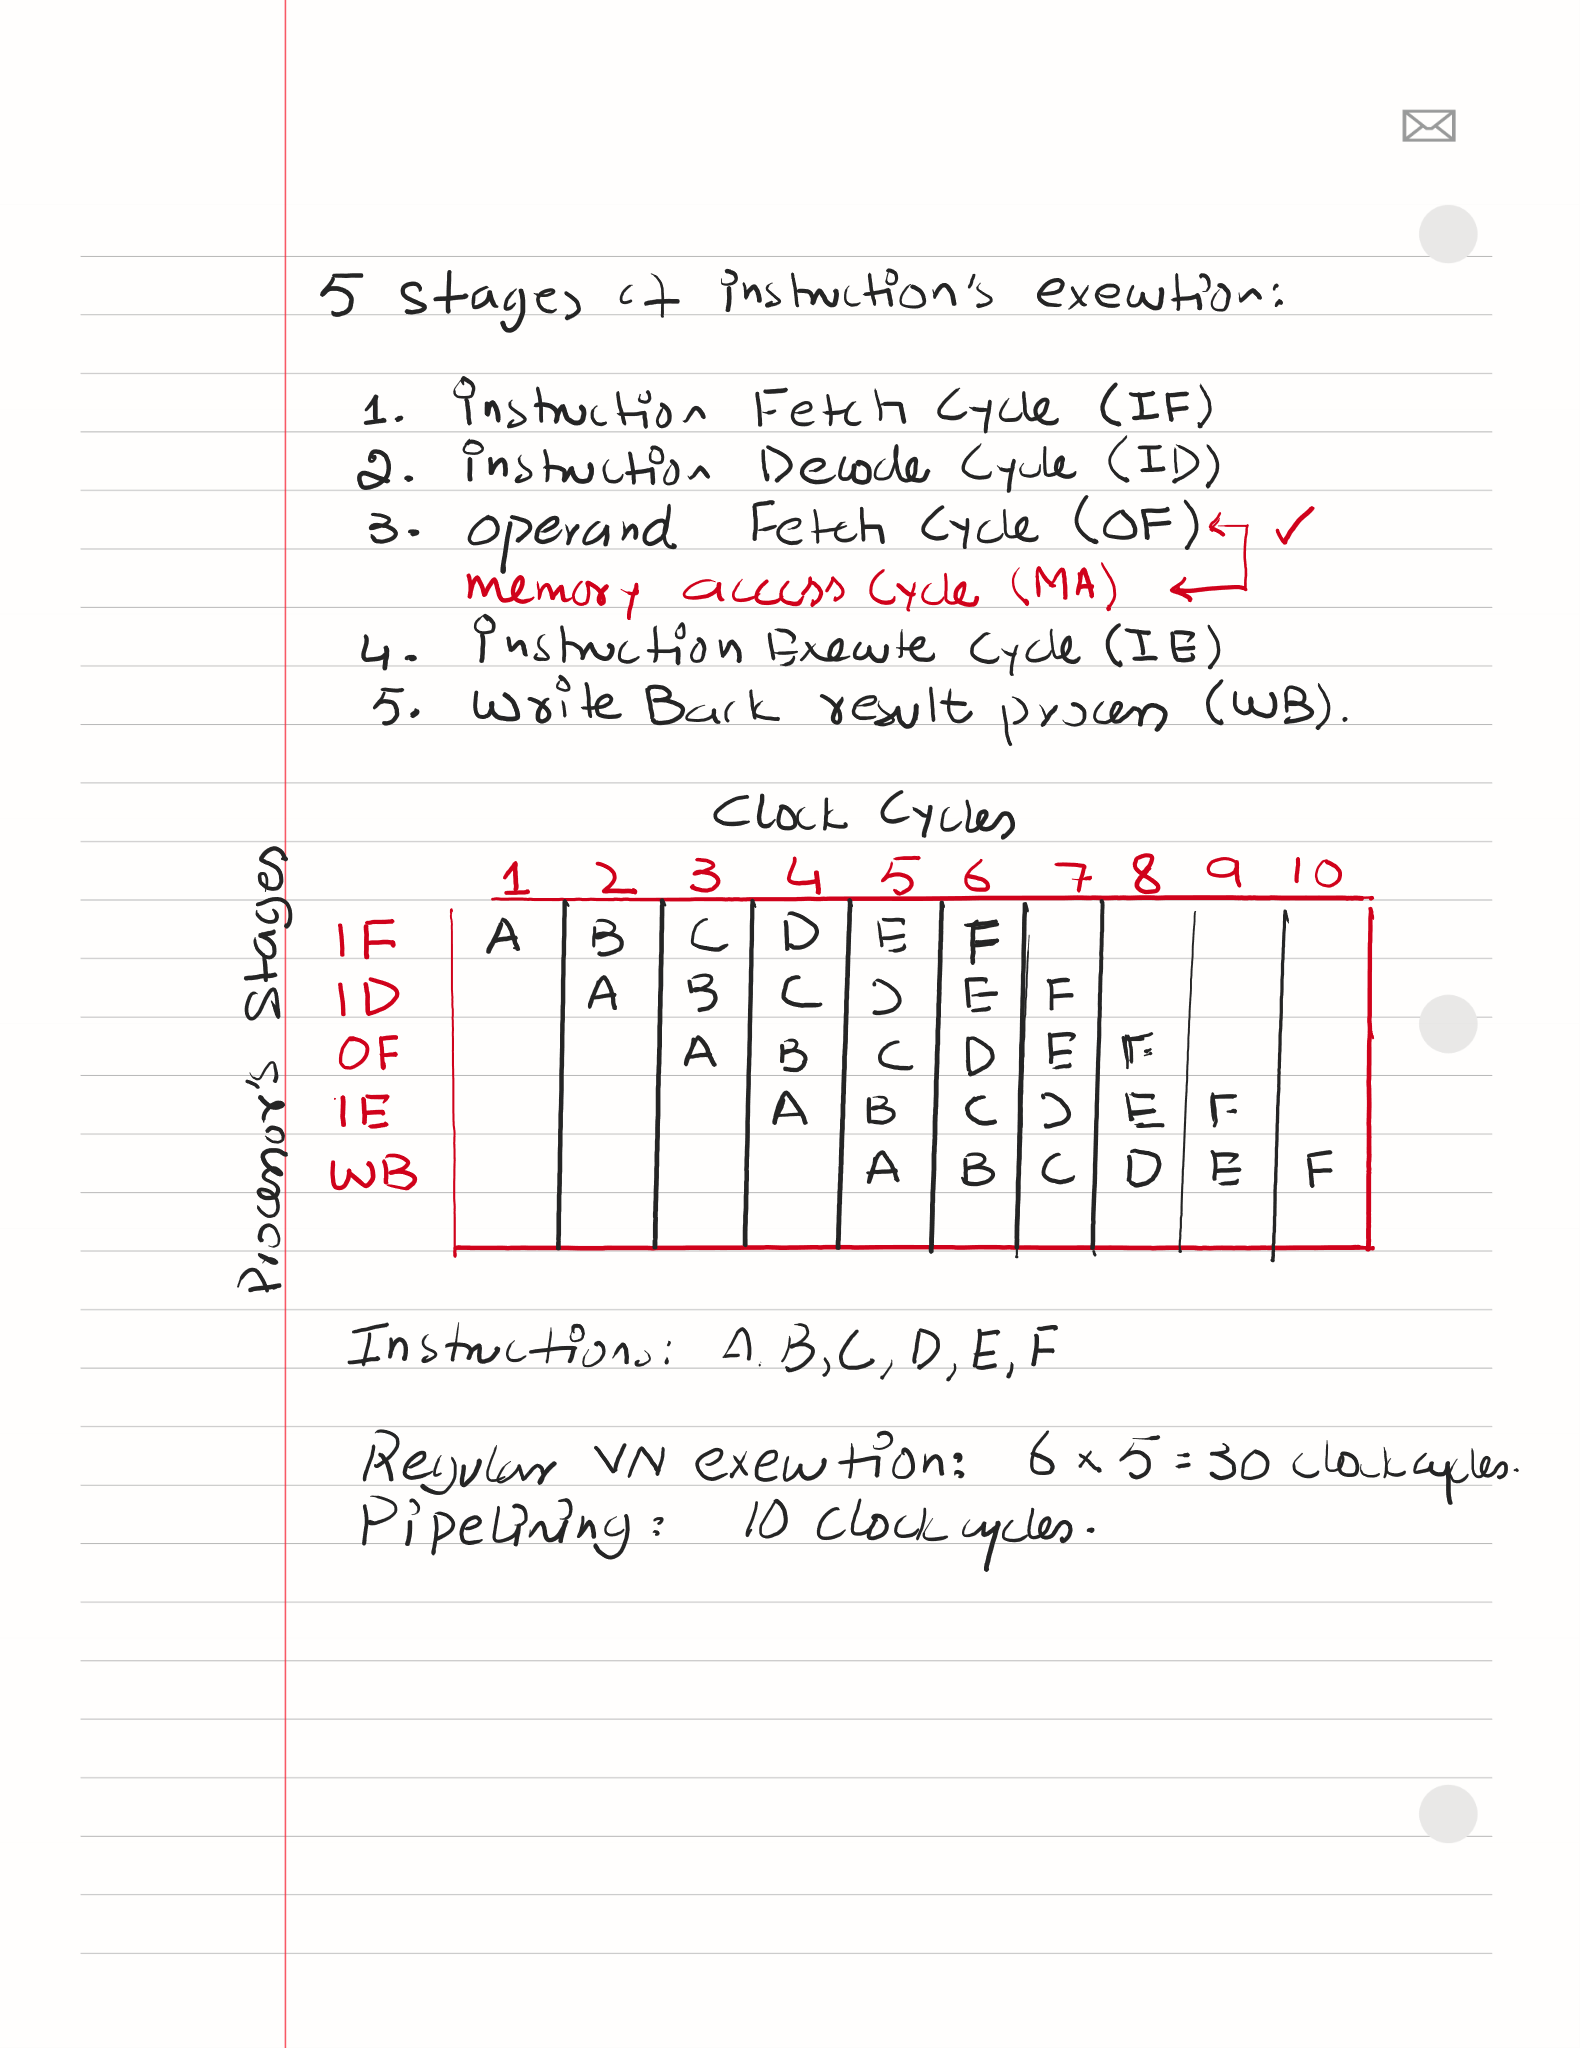 5 stages of instruction's execution:
1. instruction Fetch Cycle (IF)
2. instruction Decode Cycle (ID)
3. operand Fetch Cycle (OF) ✓
memory access Cycle (MA)
4. instruction Execute Cycle (IE)
5. Write Back result process (WB).
Clock Cycles
Processor's Stages
1 2 3 4 5 6 7 8 9 10
IF A B C D E F
ID A B C D E F
OF A B C D E F
IE A B C D E F
WB A B C D E F
Instructions: A. B, C, D, E, F
Regular VN execution: 6 x 5 = 30 clock cycles.
Pipelining: 10 clock cycles.